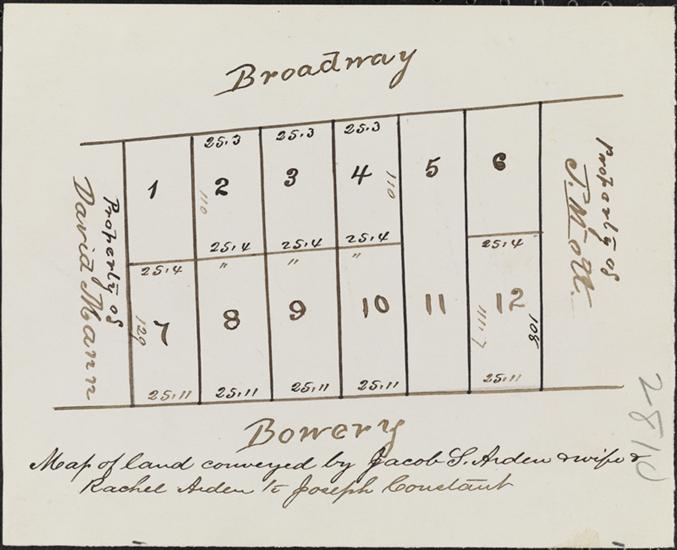 Broadway
25.3 25.3 25.3
1 2 3 4 5 6
110 110
Property of
David Mann
Property of
J. Mott
25.4 25.4 25.4 25.4
25.4 " " "
7 8 9 10 11 12
129 111.7 108
25.11 25.11 25.11 25.11 25.11
Bowery
Map of land conveyed by Jacob S. Arden & wife &
Rachel Arden to Joseph Constant
2810